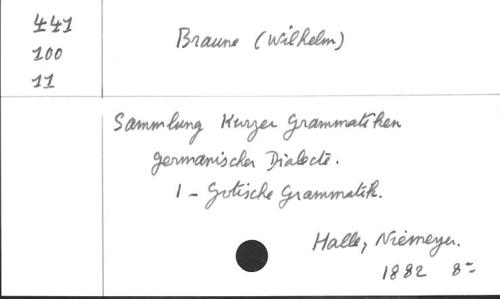 441
100
11
Braune (Wilhelm)
Sammlung Kurzer Grammatiken
germanischer Dialecte.
1 - Gotische Grammatik.
Halle, Niemeyer.
1882 8º